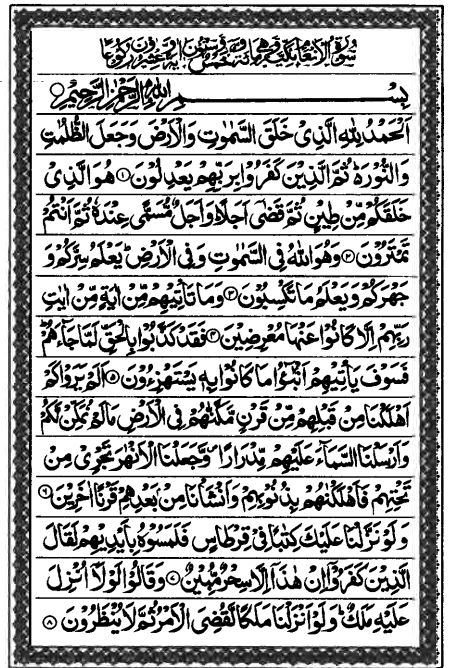 سُوْرَةُ الْاَنْعَامِ مَكِّيَّةٌ
بِسْمِ اللّٰهِ الرَّحْمٰنِ الرَّحِيْمِ ○
اَلْحَمْدُ لِلّٰهِ الَّذِیْ خَلَقَ السَّمٰوٰتِ وَالْاَرْضَ وَجَعَلَ الظُّلُمٰتِ
وَالنُّوْرَ ۬ؕ ثُمَّ الَّذِیْنَ كَفَرُوْا بِرَبِّهِمْ یَعْدِلُوْنَ ۝۱ هُوَ الَّذِیْ
خَلَقَكُمْ مِّنْ طِیْنٍ ثُمَّ قَضٰۤی اَجَلًا ؕ وَاَجَلٌ مُّسَمًّی عِنْدَهٗ ثُمَّ اَنْتُمْ
تَمْتَرُوْنَ ۝۲ وَهُوَ اللّٰهُ فِی السَّمٰوٰتِ وَفِی الْاَرْضِ ؕ یَعْلَمُ سِرَّكُمْ وَ
جَهْرَكُمْ وَیَعْلَمُ مَا تَكْسِبُوْنَ ۝۳ وَمَا تَاْتِیْهِمْ مِّنْ اٰیَةٍ مِّنْ اٰیٰتِ
رَبِّهِمْ اِلَّا كَانُوْا عَنْهَا مُعْرِضِیْنَ ۝۴ فَقَدْ كَذَّبُوْا بِالْحَقِّ لَمَّا جَآءَهُمْ ؕ
فَسَوْفَ یَاْتِیْهِمْ اَنْۢبٰٓؤُا مَا كَانُوْا بِهٖ یَسْتَهْزِءُوْنَ ۝۵ اَلَمْ یَرَوْا كَمْ
اَهْلَكْنَا مِنْ قَبْلِهِمْ مِّنْ قَرْنٍ مَّكَّنّٰهُمْ فِی الْاَرْضِ مَا لَمْ نُمَكِّنْ لَّكُمْ
وَاَرْسَلْنَا السَّمَآءَ عَلَیْهِمْ مِّدْرَارًا ۪ وَّجَعَلْنَا الْاَنْهٰرَ تَجْرِیْ مِنْ
تَحْتِهِمْ فَاَهْلَكْنٰهُمْ بِذُنُوْبِهِمْ وَاَنْشَاْنَا مِنْۢ بَعْدِهِمْ قَرْنًا اٰخَرِیْنَ ۝۶
وَلَوْ نَزَّلْنَا عَلَیْكَ كِتٰبًا فِیْ قِرْطَاسٍ فَلَمَسُوْهُ بِاَیْدِیْهِمْ لَقَالَ
الَّذِیْنَ كَفَرُوْۤا اِنْ هٰذَاۤ اِلَّا سِحْرٌ مُّبِیْنٌ ۝۷ وَقَالُوْا لَوْلَاۤ اُنْزِلَ
عَلَیْهِ مَلَكٌ ؕ وَلَوْ اَنْزَلْنَا مَلَكًا لَّقُضِیَ الْاَمْرُ ثُمَّ لَا یُنْظَرُوْنَ ۝۸